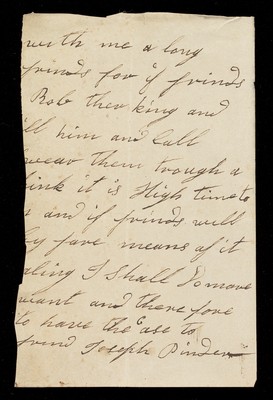 with me a long
frinds for if frinds
Rob ther king and
ll him and Call
wear them trough a
fink it is High time to
and if frinds will
by fare means of it
aling I Shall Do more
want and there fore
to have the Case to
frind Joseph Pinder